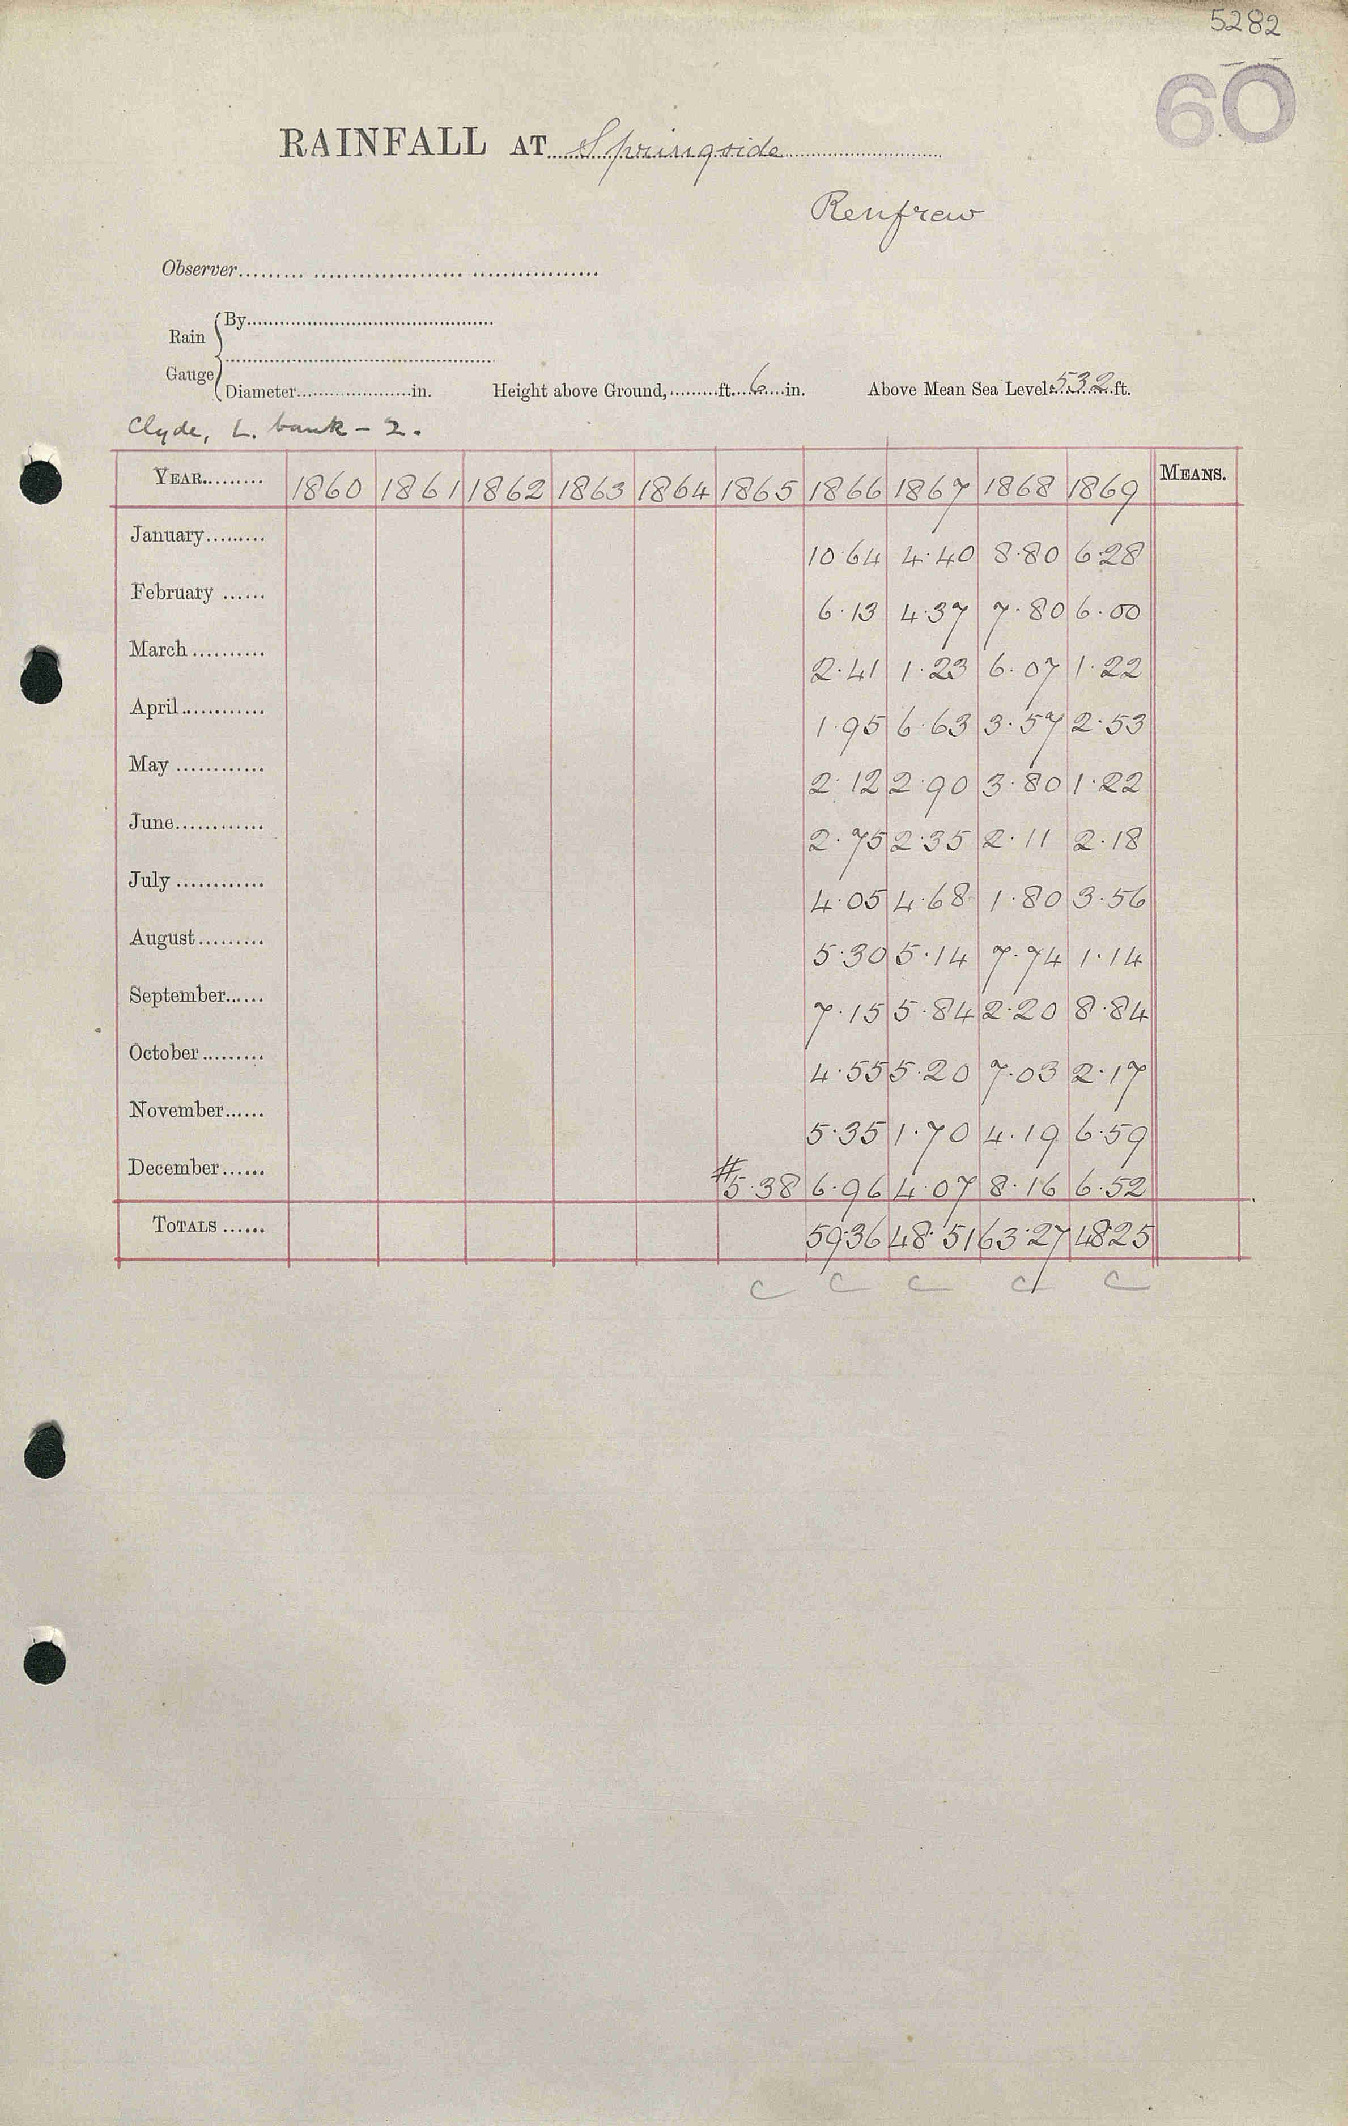 5282
60
RAINFALL AT Springside
Renfrew
Observer
Rain Gauge By
Diameter in. Height above Ground, ft. 6 in. Above Mean Sea Level 532 ft.
Clyde, L. bank - 2.
YEAR 1860 1861 1862 1863 1864 1865 1866 1867 1868 1869 MEANS.
January 10.64 4.40 8.80 6.28
February 6.13 4.37 7.80 6.00
March 2.41 1.23 6.07 1.22
April 1.95 6.63 3.57 2.53
May 2.12 2.90 3.80 1.22
June 2.75 2.35 2.11 2.18
July 4.05 4.68 1.80 3.56
August 5.30 5.14 7.74 1.14
September 7.15 5.84 2.20 8.84
October 4.55 5.20 7.03 2.17
November 5.35 1.70 4.19 6.59
December #5.38 6.96 4.07 8.16 6.52
TOTALS 59.36 48.51 63.27 48.25
C C C C C